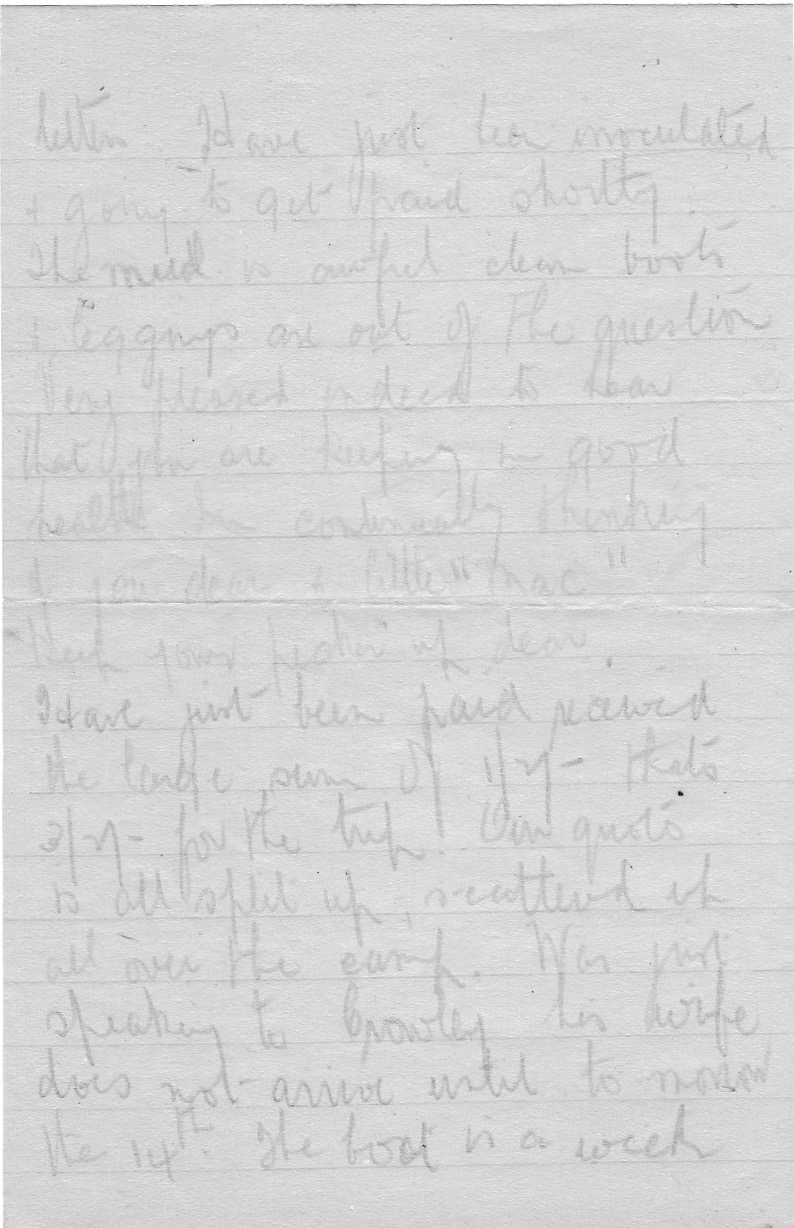 letter. Have just been inoculated
+ going to get paid shortly.
The mud is awful clean boots
+ leggings are out of the question
Very pleased indeed to hear
that you are keeping in good
health Im continually thinking
of you dear + little "mac"
Keep your pecker up dear.
Have just been paid received
the large sum of thats
for the trip! Our quota
is all split up, scattered
all over the camp. Was just
speaking to Crowley his wife
does not arrive until to morrow
the 14th. The boat is a week